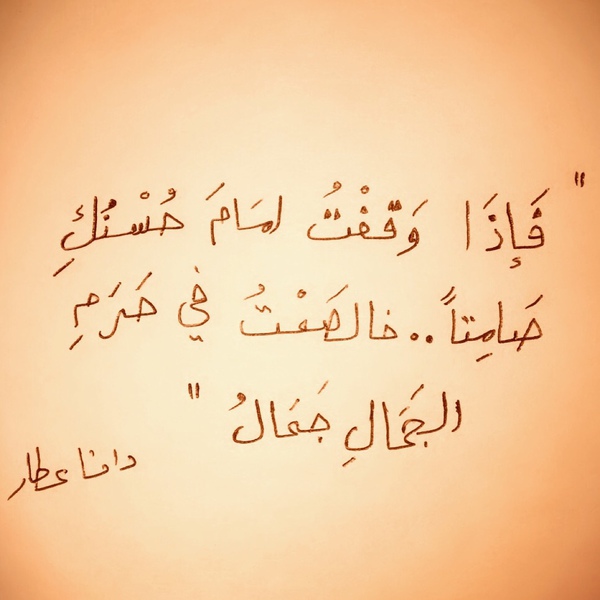 "فَإِذَا وَقَفْتُ امَامَ حُسْنُكِ
صَامِتاً .. فالصَمْتُ في حَرَمِ
الجَمَالِ جَمَالُ"
دانا عطار